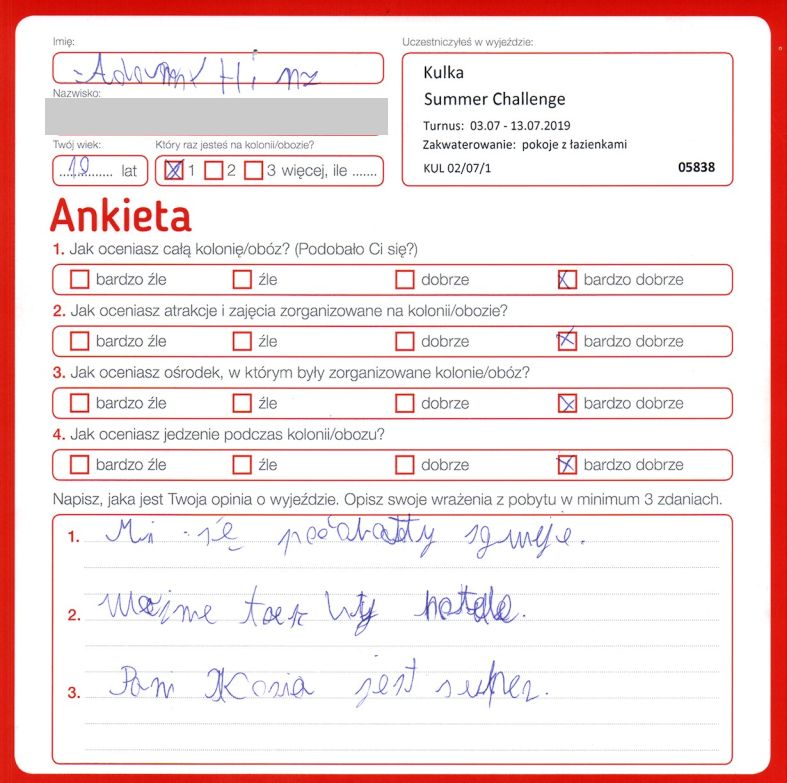 Imię:
Uczestniczyłeś w wyjeździe:
Nazwisko:
Kulka
Summer Challenge
Turnus: 03.07 - 13.07.2019
Zakwaterowanie: pokoje z łazienkami
KUL 02/07/1 05838
Twój wiek: Który raz jesteś na kolonii/obozie?
10 lat 1 2 3 więcej, ile .......
Ankieta
1. Jak oceniasz całą kolonię/obóz? (Podobało Ci się?)
bardzo źle źle dobrze bardzo dobrze
2. Jak oceniasz atrakcje i zajęcia zorganizowane na kolonii/obozie?
bardzo źle źle dobrze bardzo dobrze
3. Jak oceniasz ośrodek, w którym były zorganizowane kolonie/obóz?
bardzo źle źle dobrze bardzo dobrze
4. Jak oceniasz jedzenie podczas kolonii/obozu?
bardzo źle źle dobrze bardzo dobrze
Napisz, jaka jest Twoja opinia o wyjeździe. Opisz swoje wrażenia z pobytu w minimum 3 zdaniach.
1. Mi się
2.
3. Pani Kasia jest super.